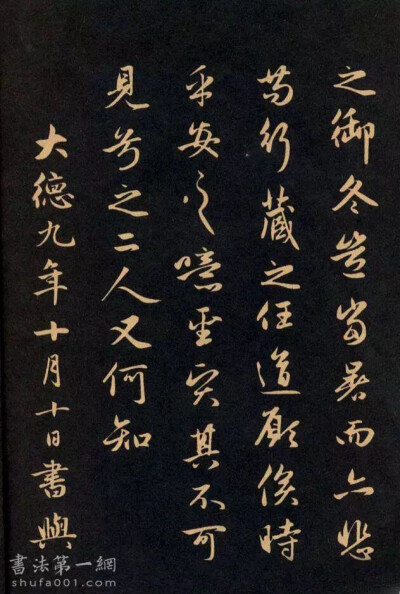 之御冬豈當暑而亦悲
苟行藏之任道顧俟時
乎安之噫聖賢其不可
見兮之二人又何知
大德九年十月十日書與
書法第一網
shufa001.com